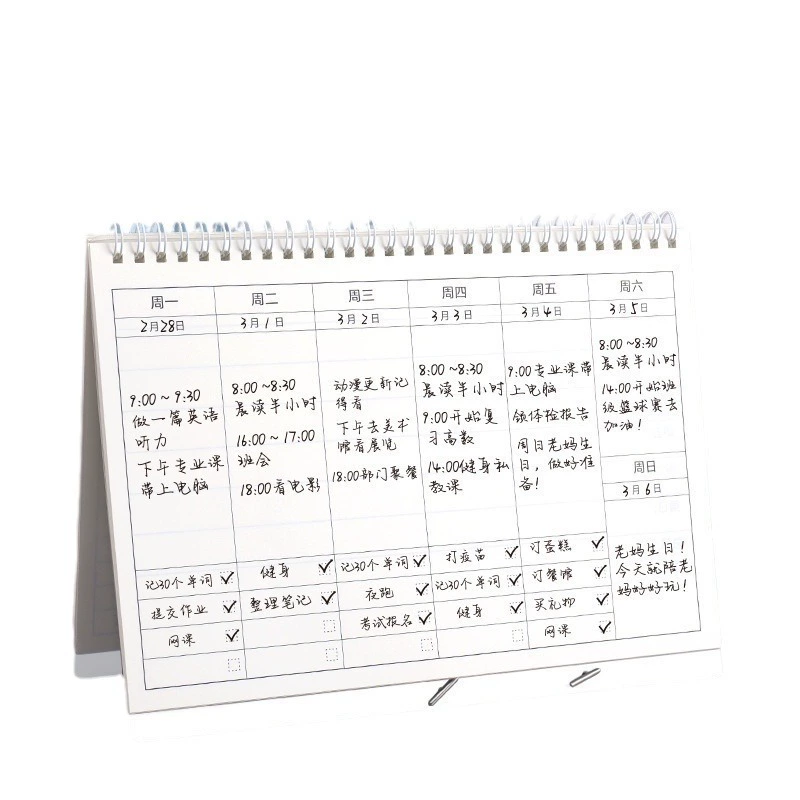 周一
2月28日
9:00~9:30
做一篇英语
听力
下午专业课
带上电脑
记30个单词
提交作业
网课
周二
3月1日
8:00~8:30
晨读半小时
16:00~17:00
班会
18:00看电影
健身
整理笔记
周三
3月2日
动漫更新记
得看
下午去美术
馆看展览
18:00部门聚餐
记30个单词
夜跑
考试报名
周四
3月3日
8:00~8:30
晨读半小时
9:00开始复
习高数
14:00健身私
教课
打疫苗
记30个单词
健身
周五
3月4日
9:00专业课带
上电脑
领体检报告
周日老妈生
日，做好准
备！
订蛋糕
订餐馆
买礼物
网课
周六
3月5日
8:00~8:30
晨读半小时
14:00开始班
级篮球赛去
加油！
周日
3月6日
老妈生日！
今天就陪老
妈好好玩！